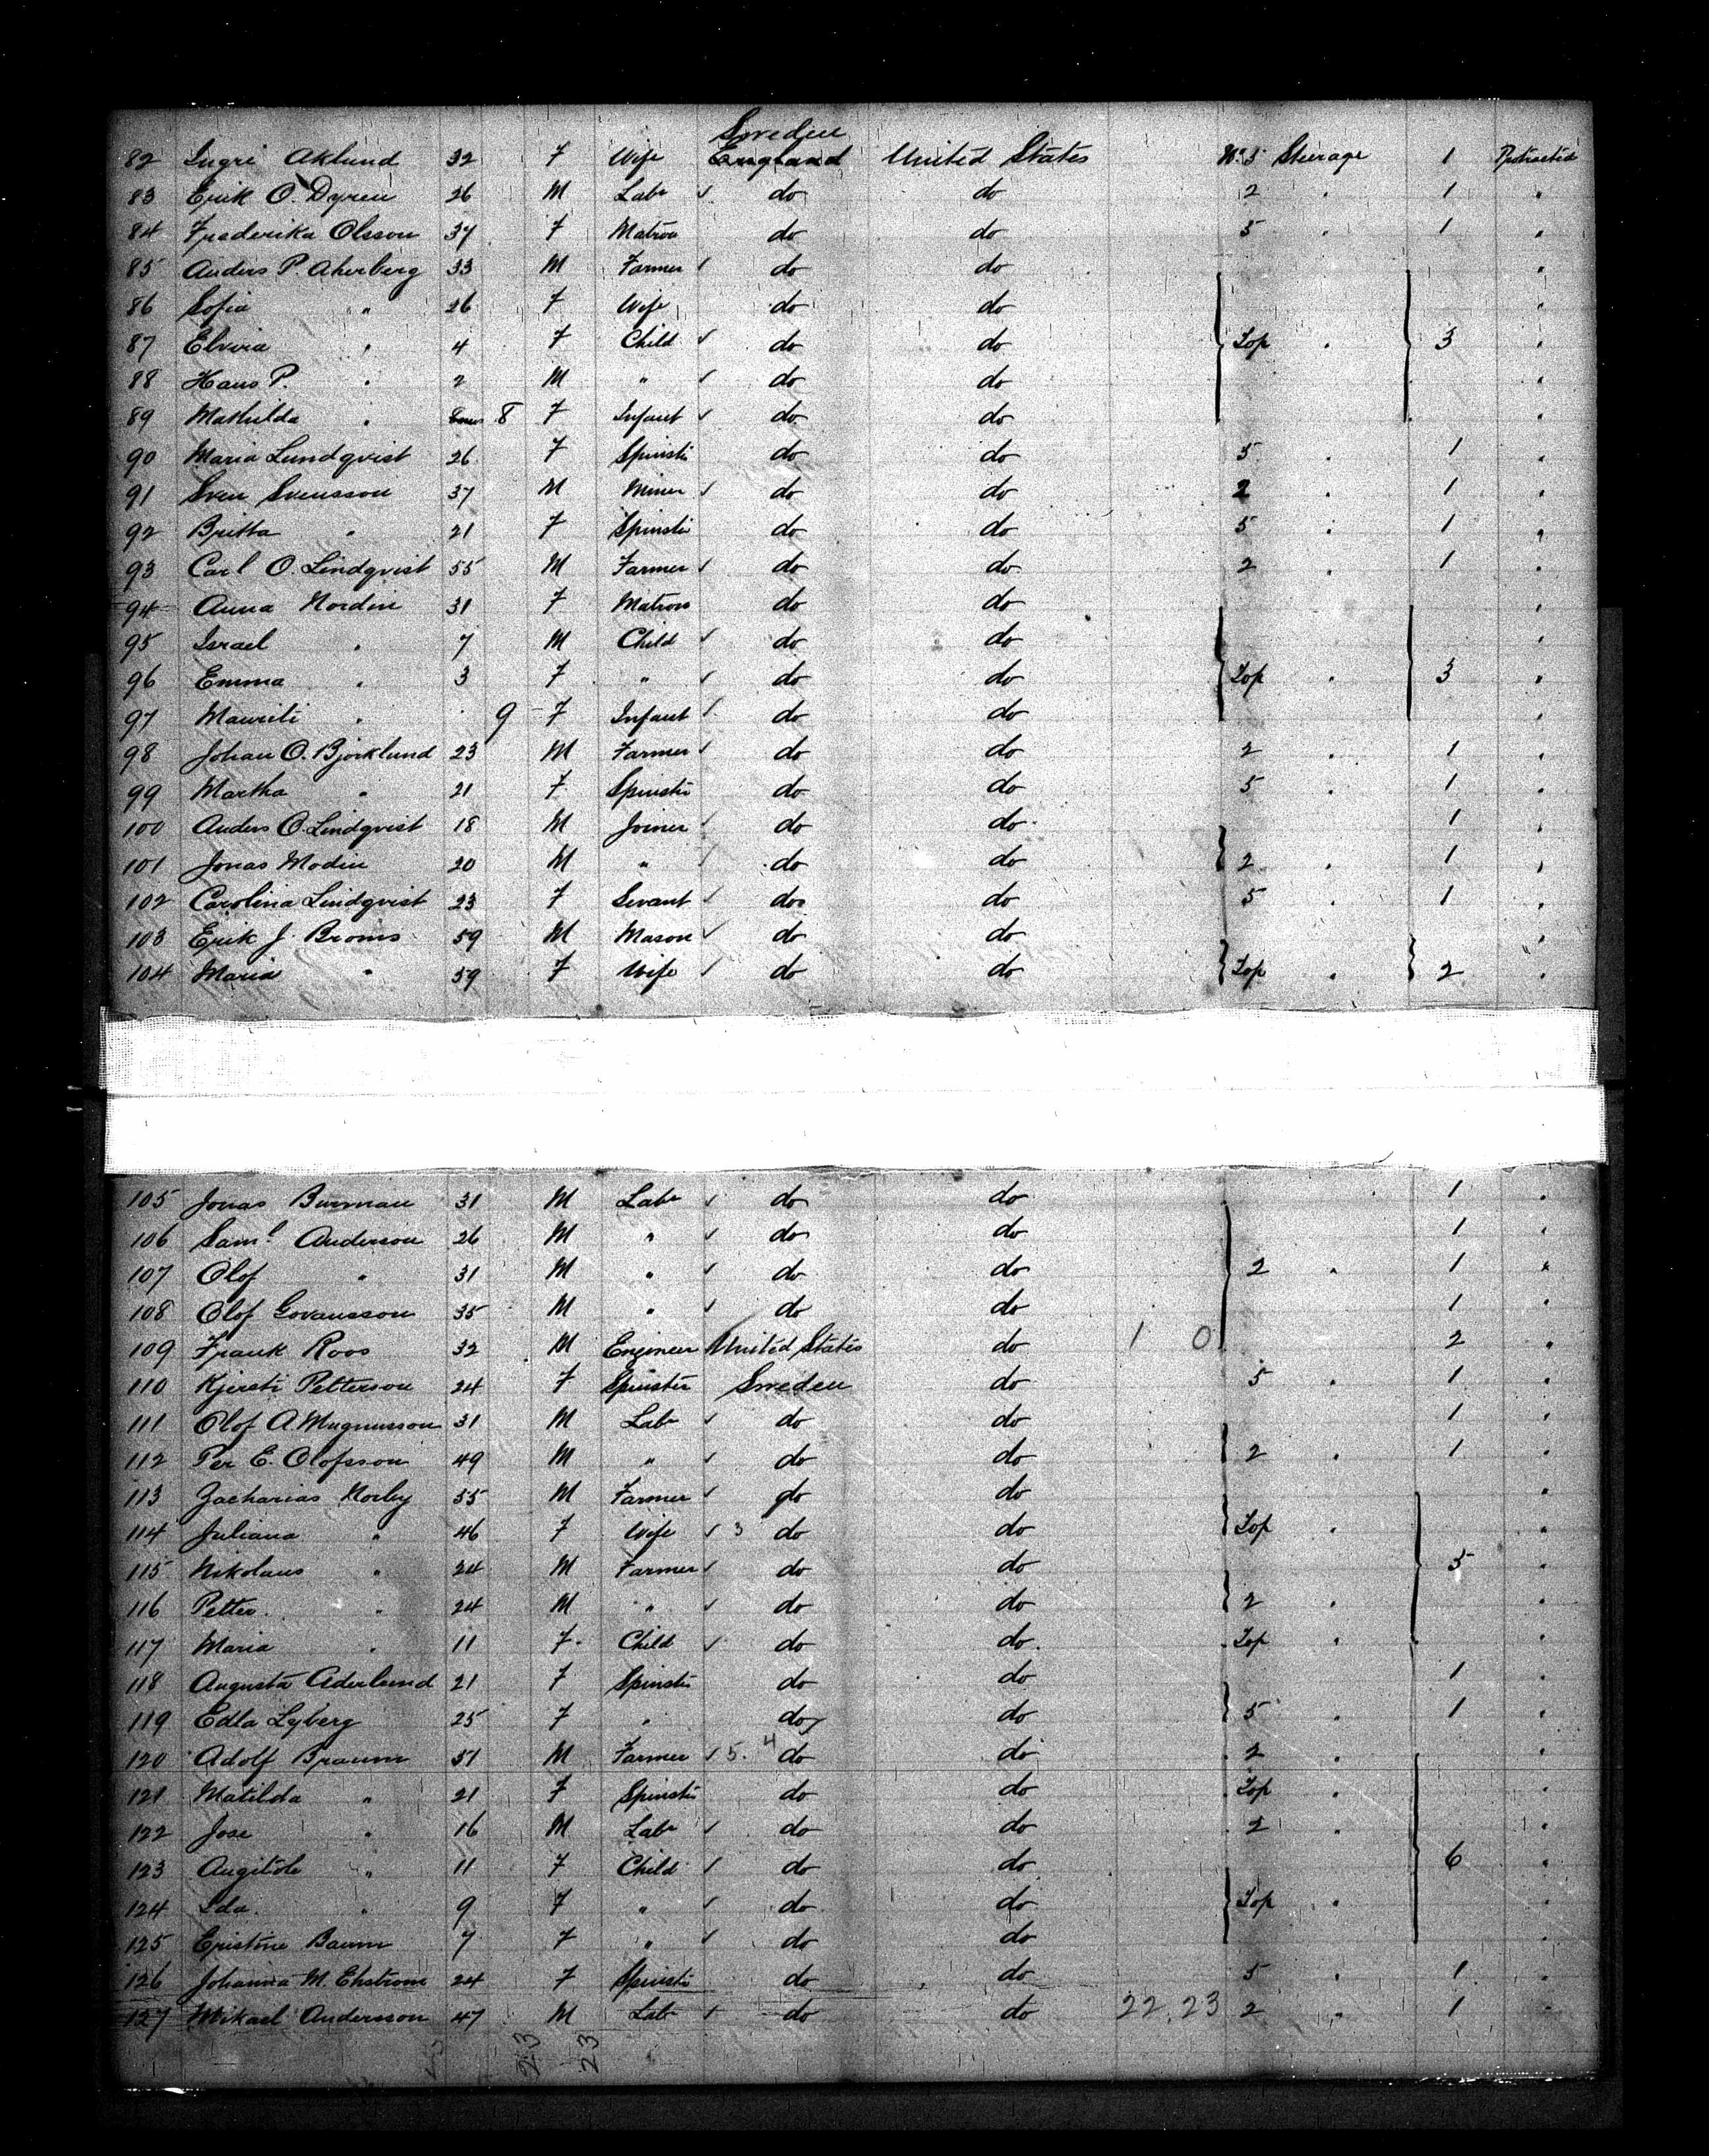 Sweden
82 Ingri Aklund 32 F Wife England United States No 5 Steerage 1 Protracted
83 Erik O. Dyren 26 M Labr do do 2 " 1 "
84 Frederika Olsson 37 F Matron do do 5 " 1 "
85 Anders P. Aherberg 33 M Farmer do do "
86 Sofia " 26 F Wife do do "
87 Elvira " 4 F Child do do Top " 3 "
88 Hans P. " 2 M " do do "
89 Mathilda " 8 F Infant do do "
90 Maria Lundqvist 26 F Spinstr do do 5 " 1 "
91 Sven Svensson 37 M Miner do do 2 " 1 "
92 Britta " 21 F Spinstr do do 5 " 1 "
93 Carl O. Lindqvist 55 M Farmer do do 2 " 1 "
94 Anna Nordin 31 F Matron do do "
95 Israel " 7 M Child do do "
96 Emma " 3 F " do do Top " 3 "
97 Mauriti " 9 F Infant do do "
98 Johan O. Bjorklund 23 M Farmer do do 2 " 1 "
99 Martha " 21 F Spinstr do do 5 " 1 "
100 Anders O. Lindqvist 18 M Joiner do do 1 "
101 Jonas Modin 20 M " do do 2 " 1 "
102 Carolina Lindqvist 23 F Sevant do do 5 " 1 "
103 Erik J. Broms 59 M Mason do do "
104 Maria " 59 F Wife do do Top " 2 "
105 Jonas Burman 31 M Labr do do 1 "
106 Saml Anderson 26 M " do do 1 "
107 Olof " 31 M " do do 2 " 1 "
108 Olof Govansson 35 M " do do 1 "
109 Frank Roos 32 M Engineer United States do 1 0 2 "
110 Kjersti Petterson 24 F Spinster Sweden do 5 " 1 "
111 Olof A. Magnusson 31 M Labr do do 1 "
112 Per E. Olofsson 49 M " do do 2 " 1 "
113 Zacharias Norby 55 M Farmer do do "
114 Juliana " 46 F Wife 3 do do Top " "
115 Nikolaus " 24 M Farmer do do 5 "
116 Petter " 24 M " do do 2 " "
117 Maria " 11 F Child do do Top " "
118 Augusta Aderlund 21 F Spinstr do do 1 "
119 Edla Lyberg 25 F " do do 5 " 1 "
120 Adolf Braum 51 M Farmer 5. 4 do do 2 " "
121 Matilda " 21 F Spinstr do do Top " "
122 Jose " 16 M Labr do do 2 " "
123 Augitole " 11 F Child do do 6 "
124 Ida " 9 F " do do Top " "
125 Cristine Baum 7 F " do do "
126 Johanna M. Ekstrom 24 F Spinstr do do 5 " 1 "
127 Mikael Andersson 47 M Labr do do 22.23 2 " 1 "
23 23